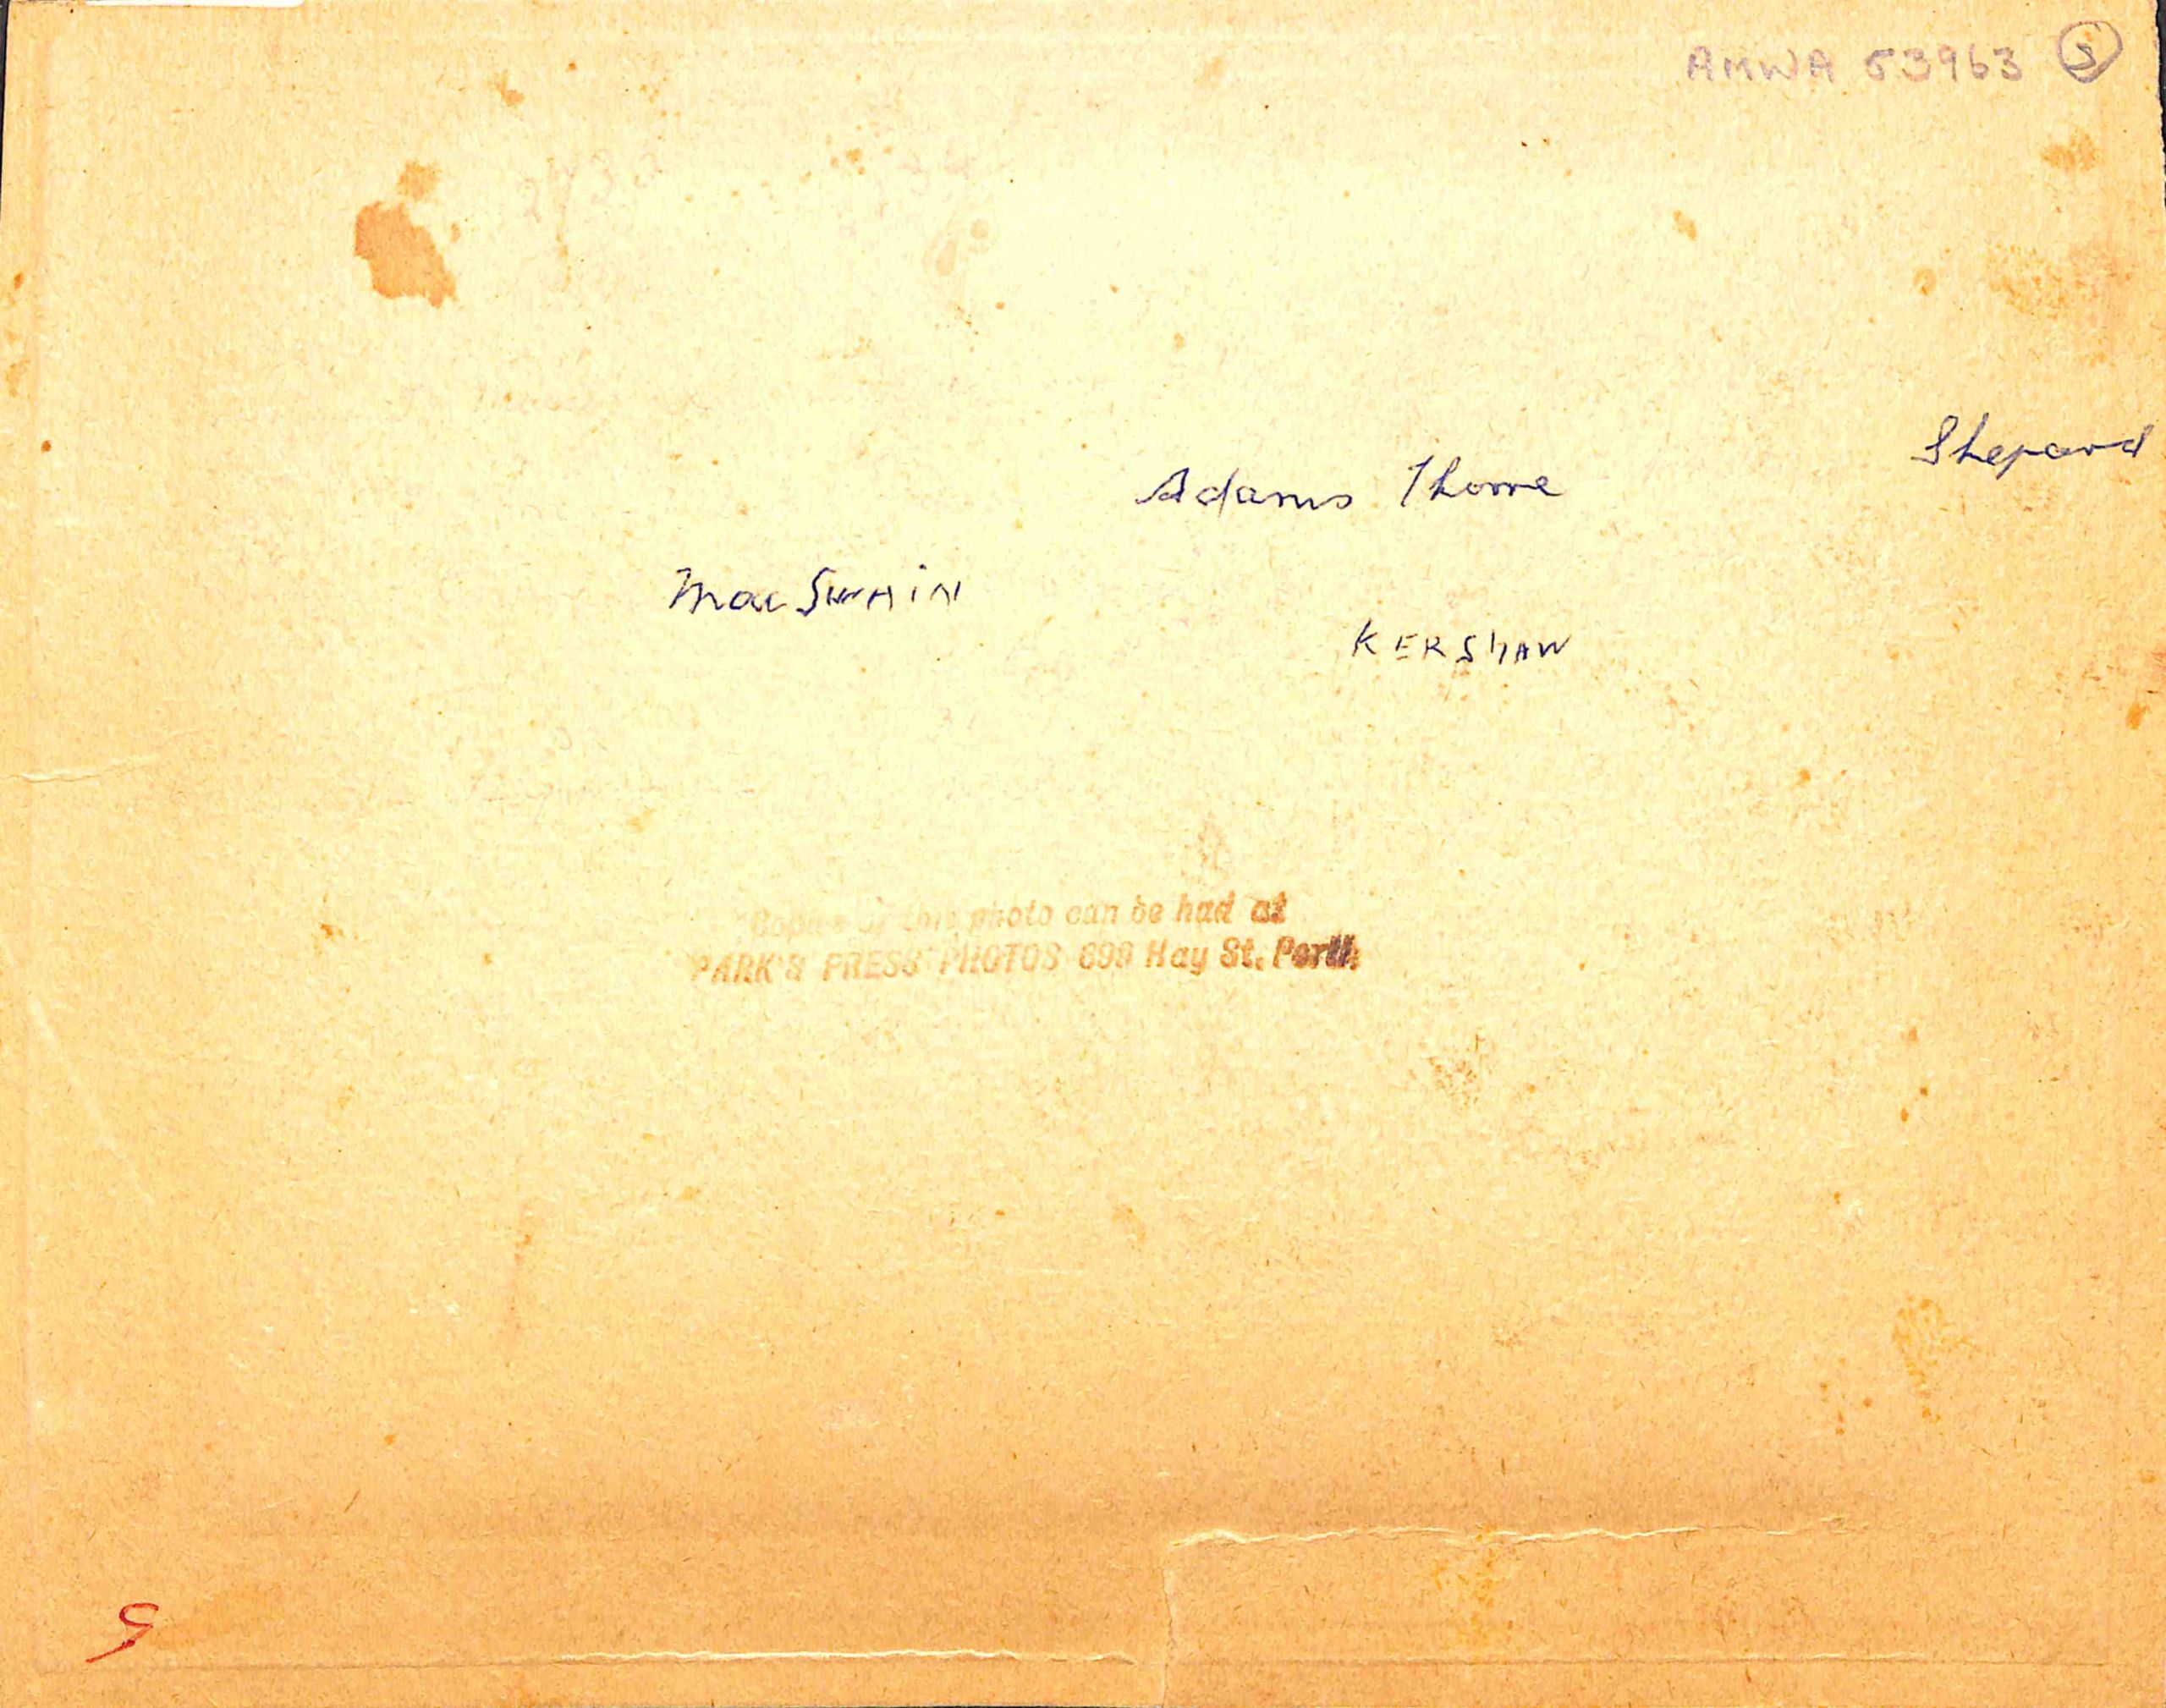 AMWA 53963 3
Shepard
Adams Thorne
MacSwAiN
KERSHAW
Copies of this photo can be had at
PARK'S PRESS PHOTOS 699 Hay St. Perth
5